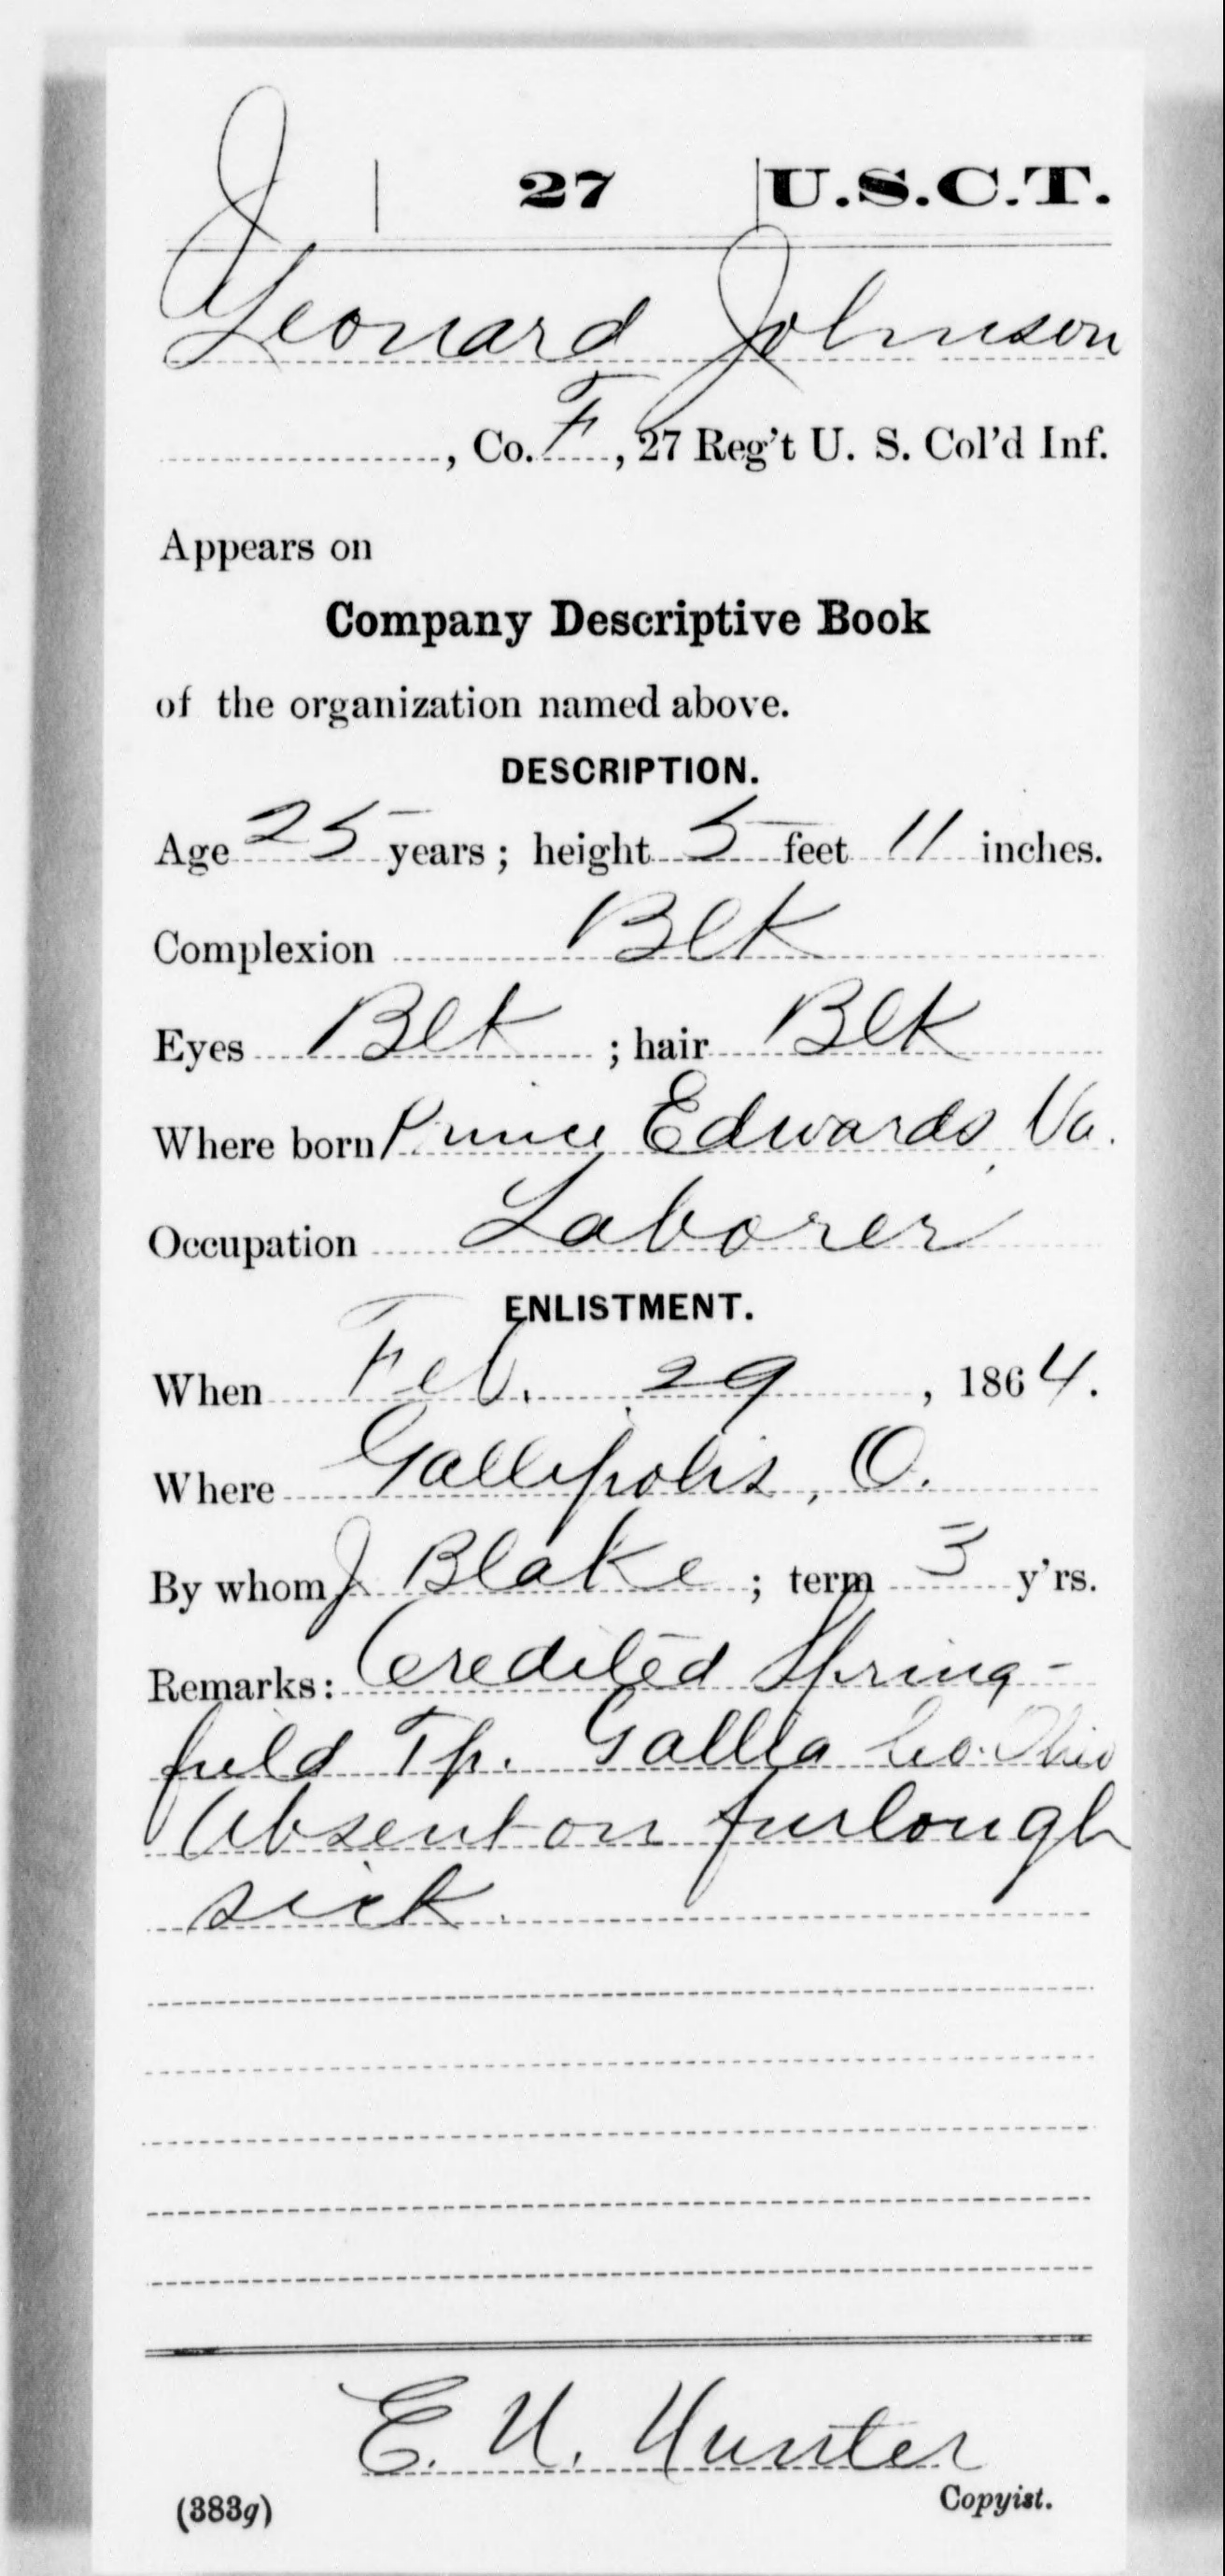 J | 27 | U.S.C.T.
Leonard Johnson
, Co. F, 27 Reg't U. S. Col'd Inf.
Appears on
Company Descriptive Book
of the organization named above.
DESCRIPTION.
Age 25 years; height 5 feet 11 inches.
Complexion Blk
Eyes Blk; hair Blk
Where born Prince Edwards, Va.
Occupation Laborer
ENLISTMENT.
When Feb. 29, 1864.
Where Gallipolis, O.
By whom J Blake; term 3 y'rs.
Remarks: Credited Spring-
field Tp. Gallia Co. Ohio
Absent on furlough
sick.
E. H. Hunter
Copyist.
(383g)